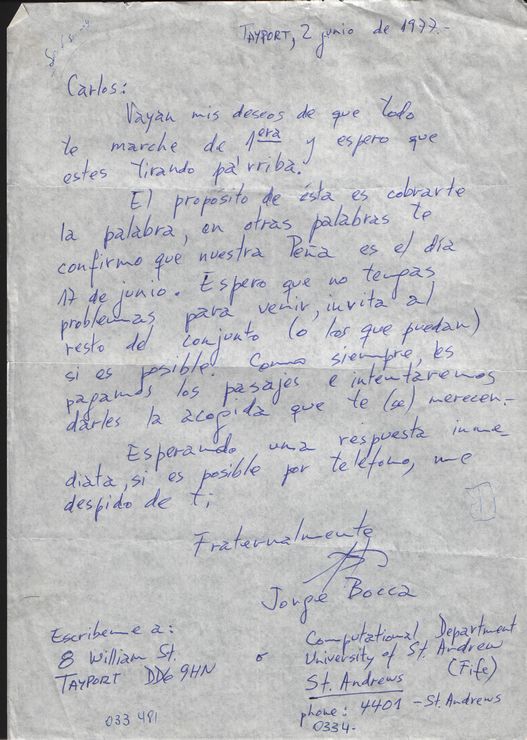 TAYPORT, 2 junio de 1977.-
Carlos:
Vayan mis deseos de que todo
te marche de 1era y espero que
estes tirando pá rriba.
El proposito de ésta es cobrarte
la palabra, en otras palabras te
confirmo que nuestra Peña es el día
17 de junio. Espero que no tengas
problemas para venir, invita al
resto del conjunto (o los que puedan)
si es posible. Como siempre, les
pagamos los pasajes e intentaremos
darles la acogida que te (se) merecen.-
Esperando una respuesta inme-
diata, si es posible por teléfono, me
despido de ti
Fraternalmente
Jorge Bocca
Escribeme a:
8 William St.
TAYPORT DD6 9HN
033 481
o
Computational Department
University of St. Andrew
St. Andrews (Fife)
phone: 4401 - St. Andrews
0334-